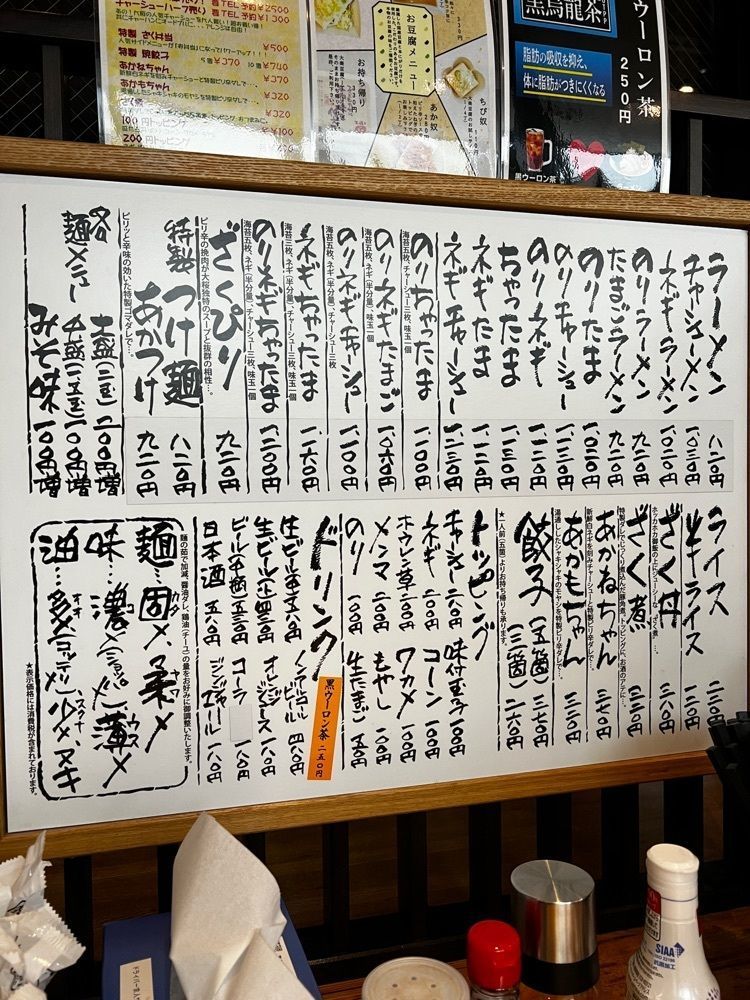 ¥2500
¥1300
特製 ざく弁当
¥500
特製 焼餃子
5個 ¥370
10個 ¥740
あかねちゃん
¥370
あかもちゃん
¥320
ざく煮
¥320
100円トッピング
¥100
200円トッピング
¥200
お豆腐メニュー
お持ち帰り
あか奴
ちび奴
黒烏龍茶
脂肪の吸収を抑え、
体に脂肪がつきにくくなる
黒ウーロン茶
黒ウーロン茶
250円
ラーメン 八二〇円
チャーシューメン 一、〇三〇円
ネギラーメン 一、〇二〇円
のりラーメン 九二〇円
たまごラーメン 九二〇円
のりたま 一、〇二〇円
のりチャーシュー 一、一三〇円
のりネギ 一、一二〇円
ちゃったま 一、一三〇円
ネギたま 一、一二〇円
ネギチャーシュー 一、二三〇円
のりちゃったま 一、一〇〇円
海苔五枚、チャーシュー三枚、味玉一個
のりネギたまご 一、〇六〇円
海苔五枚、ネギ(半分量)、味玉一個
のりネギチャーシュー 一、一〇〇円
海苔五枚、ネギ(半分量)、チャーシュー三枚
ネギちゃったま 一、一六〇円
海苔三枚、ネギ(半分量)、チャーシュー三枚、味玉一個
のりネギちゃったま 一、二〇〇円
海苔五枚、ネギ(半分量)、チャーシュー三枚、味玉一個
ざくぴり 九二〇円
ピリ辛の挽肉が大桜独特のスープと抜群の相性…。
特製 つけ麺 八二〇円
あかつけ 九二〇円
ピリッと辛味の効いた特製ゴマダレで…。
各麺メニュー
大盛(二玉)二〇〇円増
中盛(一・五玉)一〇〇円増
みそ味 一〇〇円増
ライス
半ライス
ざく丼
ホッカホカ御飯の上にジューシーな「ざく煮」…
ざく煮 三二〇円
特製ダレでじっくり煮込んだ豚角煮。トッピングに、お酒のアテに…。
あかねちゃん 三七〇円
新鮮白ネギを刻みチャーシューと特製ピリ辛ダレで…。
あかもちゃん 三二〇円
湯通ししたシャキシャキのモヤシを特製ピリ辛ダレで…。
餃子 (五箇) 三七〇円
(三箇) 二六〇円
★一人前(五箇)よりお持ち帰りも承ります。
トッピング
チャーシュー 二一〇円
ネギ 二〇〇円
ホウレン草 一〇〇円
メンマ 一〇〇円
のり 一〇〇円
味付玉子 一〇〇円
コーン 一〇〇円
ワカメ 一〇〇円
もやし 一〇〇円
生たまご 五〇円
ドリンク
黒ウーロン茶 二五〇円
生ビール(中) 五八〇円
生ビール(小) 四三〇円
ビール(中瓶) 五三〇円
日本酒 五八〇円
ノンアルコールビール 四八〇円
オレンジジュース 一八〇円
コーラ 一八〇円
ジンジャエール 一八〇円
麺の茹で加減、醤油ダレ、鶏油(チーユ)の量をお好みに御調整いたします。
麺…固メ 柔メ
カタ ヤワ
味…濃メ(ショッパメ) 薄メ
コイ ウス
油…多メ(コッテリ) 少メ、ヌキ
オオ スクナ
★表示価格には消費税が含まれております。
SIAA
ISO 22196
抗菌加工